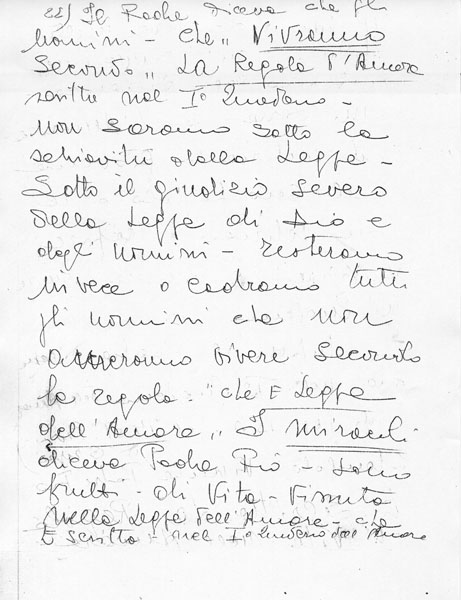 22) Il Padre diceva che gli
uomini - che " Vivranno
Secondo " La Regola d'Amore
scritta nel I° Quaderno -
non Saranno Sotto la
schiavitù della Legge -
Sotto il giudizio Severo
della Legge di Dio e
degli uomini - resteranno
invece o cadranno tutti
gli uomini che non
vivere Secondo
la regola - " che È Legge
dell'Amore " I miracoli
diceva Padre Pio - sono
frutti - di Vita - Vissuta
Nella Legge dell'Amore - che
È Scritta - nel I° Quaderno dell'Amore